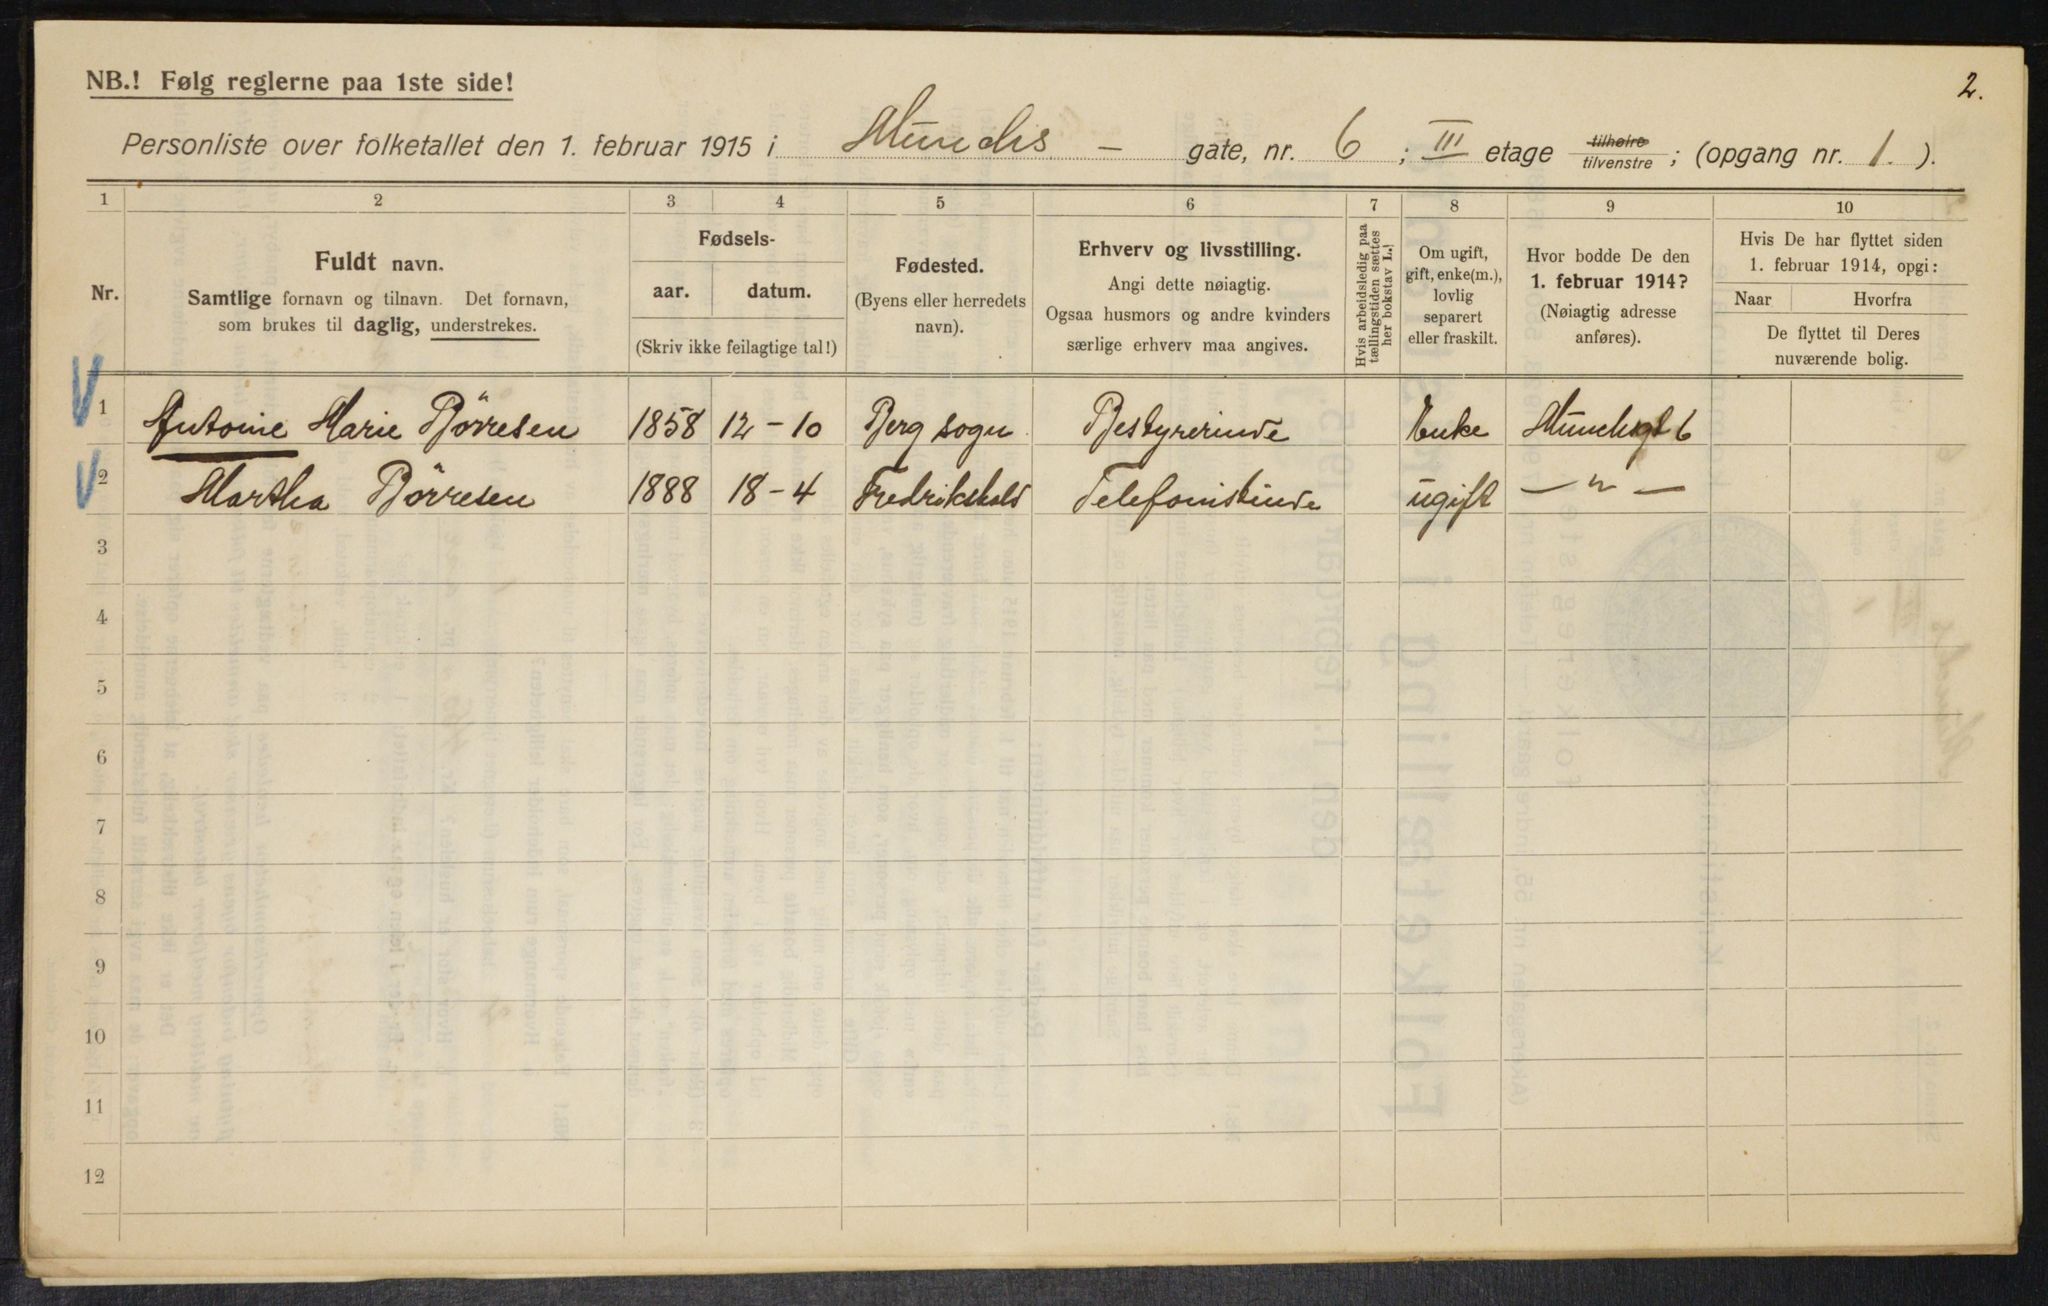 2.
NB.! Følg reglerne paa 1ste side!
Personliste over folketallet den 1. februar 1915 i Munchs - gate, nr. 6 ; III etage tilhøire tilvenstre ; (opgang nr. 1. ).
1 2 3 4 5 6 7 8 9 10
Nr.
Fuldt navn.
Samtlige fornavn og tilnavn. Det fornavn,
som brukes til daglig, understrekes.
Fødsels-
aar. datum.
(Skriv ikke feilagtige tal!)
Fødested.
(Byens eller herredets
navn).
Erhverv og livsstilling.
Angi dette nøiagtig.
Ogsaa husmors og andre kvinders
særlige erhverv maa angives.
Hvis arbeidsledig paa
tællingstiden sættes
her bokstav L.!
Om ugift,
gift, enke(m.),
lovlig
separert
eller fraskilt.
Hvor bodde De den
1. februar 1914?
(Nøiagtig adresse
anføres).
Hvis De har flyttet siden
1. februar 1914, opgi:
Naar Hvorfra
De flyttet til Deres
nuværende bolig.
1 Antonie Marie Børresen 1858 12-10 Berg sogn Bestyrerinde Enke Munchsgt 6
2 Martha Børresen 1888 18-4 Fredrikshald Telefonistinde ugift — " —
3
4
5
6
7
8
9
10
11
12